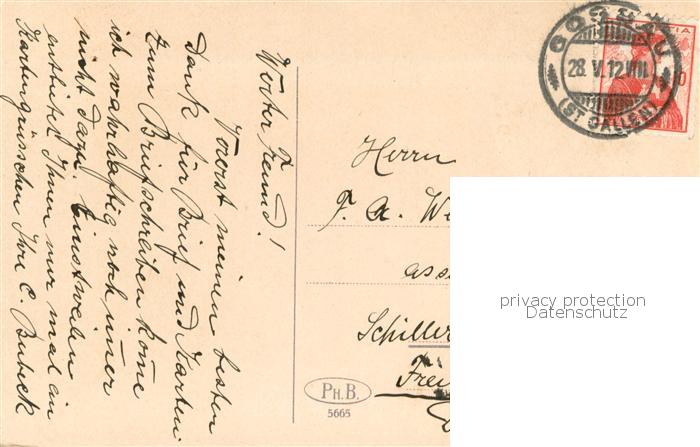 Werter Freund!
Vorerst meinen besten
Dank für Brief und Karten.
Zum Briefschreiben kome
ich wahrhaftig noch imer
nicht dazu. Einstweilen
entbietet Ihnen nur mal ein
Kartengrüsschen Ihre C. Bubeck
GOSSAU
28. V. 12 VIII
(ST GALLEN)
Herrn
F. A. We
ass
Schiller
Frei
PH. B.
5665
privacy protection
Datenschutz